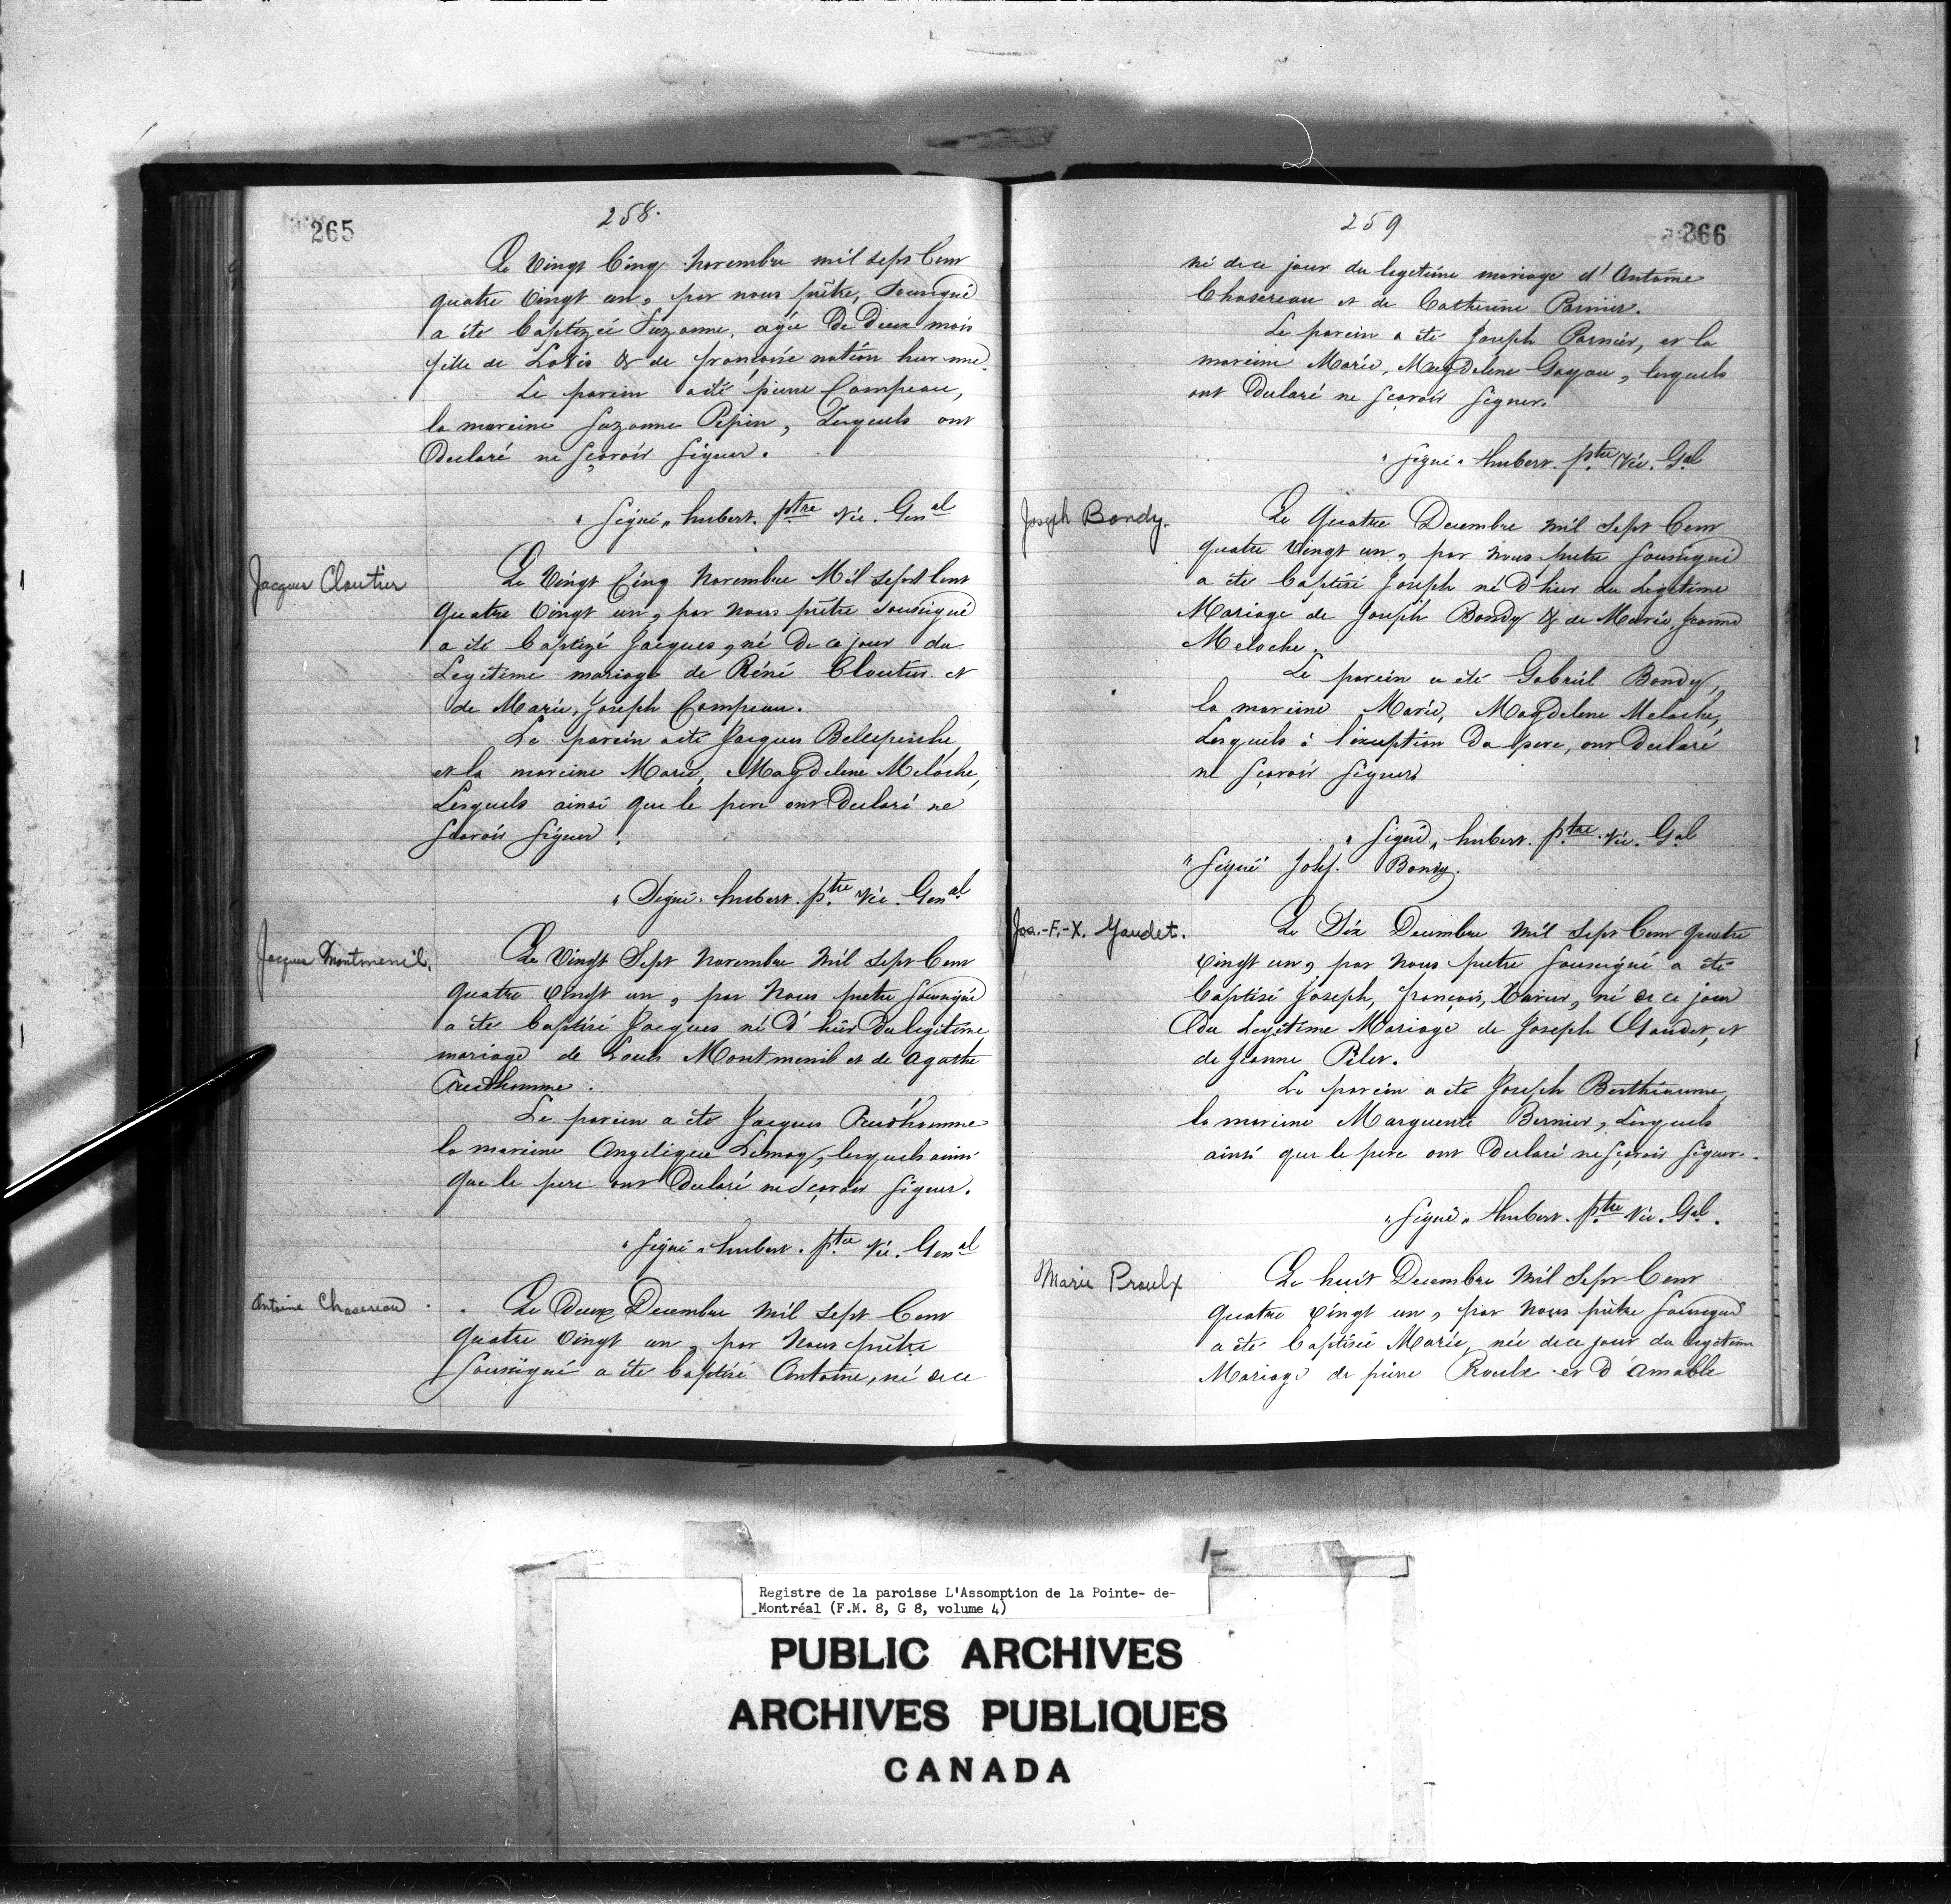 265
258.
Le Vingt Cinq novembre mil sept Cent
quatre Vingt un, par nous prêtre, Soussigné
a été Baptizée Suzanne, agée De Deux mois
fille de Loüis & de françoise nation huronne
Le parein a été pierre Campeau,
la mareine Suzanne Pepin, Lesquels ont
Declaré ne sçavoir signer.
"Signé" hubert. ptre Vic. Genal
Jacques Cloutier
Le Vingt Cinq novembre Mil sept Cent
quatre Vingt un, par nous prêtre soussigné
a été Baptizé Jacques, né De ce jour du
Legitime mariage de Réné Cloutier et
de Marie, Joseph Campeau.
Le parein a été Jacques Belleperche
et la mareine Marie, Magdelene Meloche,
Lesquels ainsi que le pere ont Declaré ne
scavoir signer.
"Signé" hubert. ptre Vic. Genal
Jacques Montmenil.
Le Vingt Sept novembre Mil Sept Cent
quatre Vingt un, par Nous pretre soussigné
a été baptisé Jacques né D'hier Du legitime
mariage de Louis Montmenil et de Agathe
Prudhomme.
Le parein a été Jacques Prudhomme
la mareine Angelique Lemay, lesquels ainsi
que le pere ont Declaré ne sçavoir signer.
"Signé" hubert. ptre Vic. Genal
Antoine Chasereau
Le Deux Decembre Mil Sept Cent
quatre Vingt un, par Nous prêtre
soussigné a été baptisé Antoine, né de ce
259
266
né de ce jour du legetime mariage d'Antoine
Chasereau et de Catherine Parnier.
Le parein a été Joseph Parnier, et la
mareine Marie, Magdelene Gayau, lesquels
ont Declaré ne sçavoir signer.
"Signé" hubert. ptre Vic. Gal
Joseph Bondy.
Le Quatre Decembre mil Sept Cent
quatre Vingt un, par nous pretre soussigné
a été baptisé Joseph né D'hier du Legitime
Mariage de Joseph Bondy & de Marie, Jeanne
Meloche.
Le parein a été Gabriel Bondy,
la mareine Marie, Magdelene Meloche,
Lesquels à l'exception Du pere, ont Declaré
ne sçavoir signer.
"Signé" hubert. ptre Vic. Gal
"Signé" Josf. Bondy.
Jos.-F.-X. Gaudet.
Le Six Decembre Mil Sept Cent quatre
vingt un, par Nous pretre soussigné a été
baptisé Joseph, françois, Xavier, né de ce jour
Du Legitime Mariage de Joseph Gaudet, et
de Jeanne Pilet.
Le parein a été Joseph Berthiaume
la mareine Marguerite Bernier, Lesquels
ainsi que le pere ont Declaré ne sçavoir signer.
"Signé" hubert. ptre Vic. Gal.
Marie Proulx
Le huit Decembre Mil Sept Cent
quatre vingt un, par Nous prêtre soussigné
a été baptisée Marie, née de ce jour du legitime
Mariage de pierre Proulx et D'amable
Registre de la paroisse L'Assomption de la Pointe- de-
Montréal (F.M. 8, G 8, volume 4)
PUBLIC ARCHIVES
ARCHIVES PUBLIQUES
CANADA